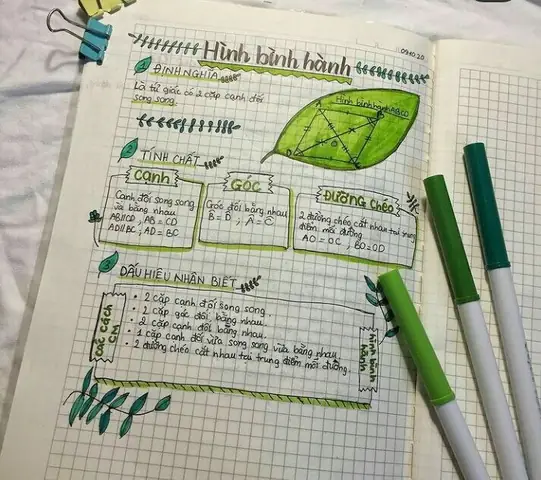 09.10.20
Hình bình hành
1 ĐỊNH NGHĨA
Là tứ giác có 2 cặp cạnh đối
song song.
Hình bình hành ABCD
A
B
D
C
2 TÍNH CHẤT
Cạnh
Cạnh đối song song
và bằng nhau
AB//CD, AB = CD
AD//BC, AD = BC
GÓC
Góc đối bằng nhau
B = D ; A = C
ĐƯỜNG CHÉO
2 đường chéo cắt nhau tại trung
điểm mỗi đường
AO = OC, BO = OD
3 DẤU HIỆU NHẬN BIẾT
CÁC CÁCH
CM
• 2 cặp cạnh đối song song.
• 2 cặp góc đối bằng nhau.
• 2 cặp cạnh đối bằng nhau.
• 1 cặp cạnh đối vừa song song vừa bằng nhau
• 2 đường chéo cắt nhau tại trung điểm mỗi đường.
hình bình
hành